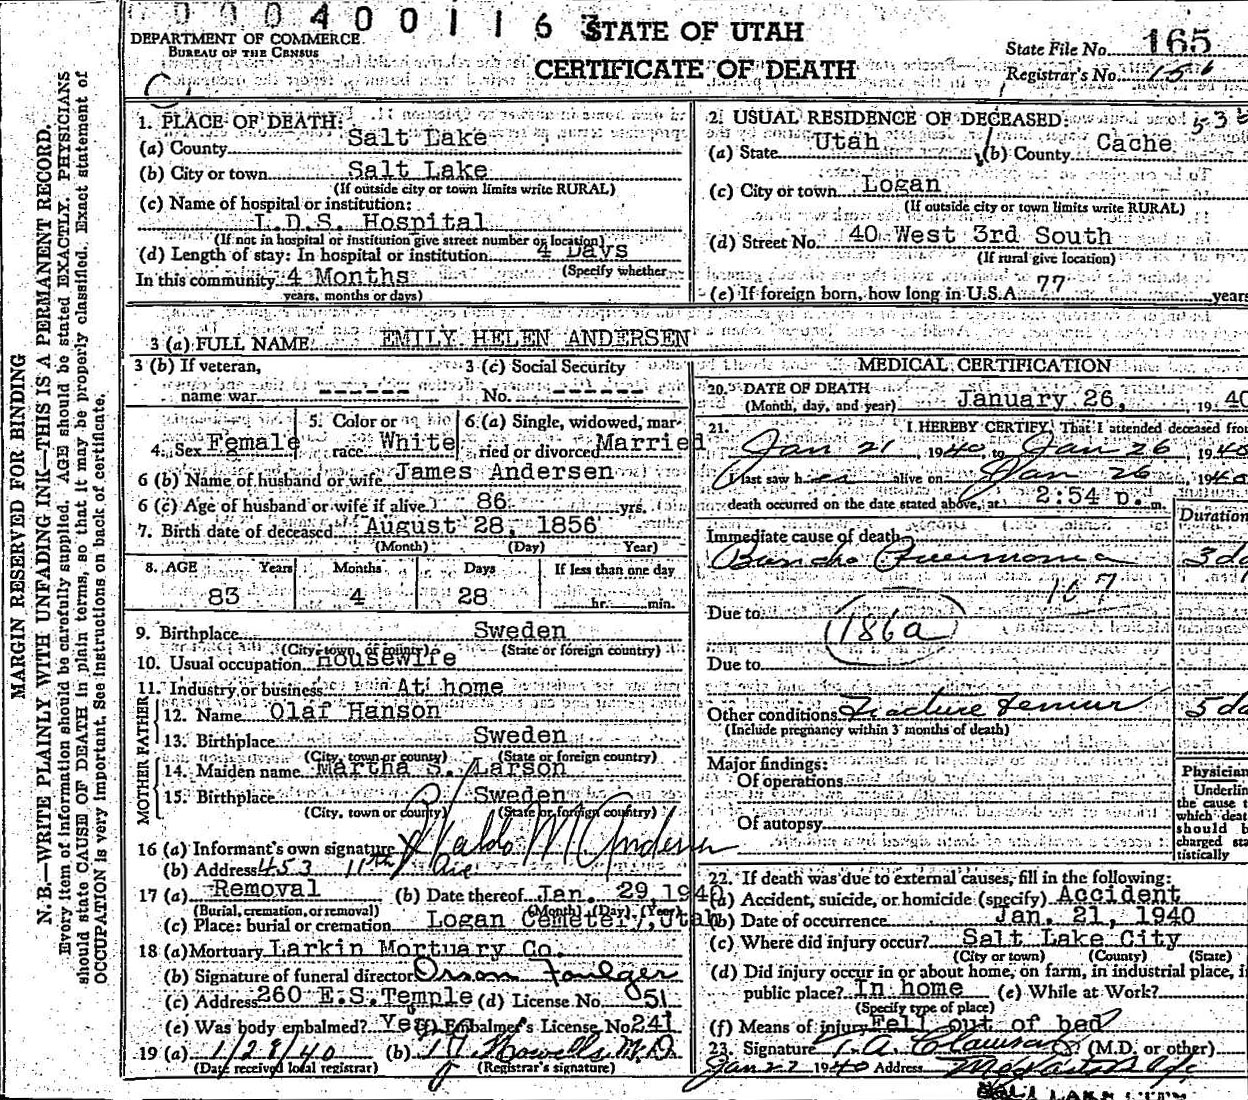 00040011 6
STATE OF UTAH
DEPARTMENT OF COMMERCE
BUREAU OF THE CENSUS
CERTIFICATE OF DEATH
State File No. 165
Registrar's No. 156
MARGIN RESERVED FOR BINDING
N. B.—WRITE PLAINLY WITH UNFADING INK—THIS IS A PERMANENT RECORD.
Every item of information should be carefully supplied. AGE should be stated EXACTLY. PHYSICIANS
should state CAUSE OF DEATH in plain terms, so that it may be properly classified. Exact statement of
OCCUPATION is very important. See instructions on back of certificate.
1. PLACE OF DEATH:
(a) County Salt Lake
(b) City or town Salt Lake
(If outside city or town limits write RURAL)
(c) Name of hospital or institution:
L.D.S. Hospital
(If not in hospital or institution give street number or location)
(d) Length of stay: In hospital or institution 4 Days
(Specify whether
In this community 4 Months
years, months or days)
2. USUAL RESIDENCE OF DECEASED
(a) State Utah (b) County Cache
(c) City or town Logan
(If outside city or town limits write RURAL)
(d) Street No. 40 West 3rd South
(If rural give location)
(e) If foreign born, how long in U.S.A. 77 years
3 (a) FULL NAME EMILY HELEN ANDERSEN
3 (b) If veteran,
name war ------
3 (c) Social Security
No. ------
4. Sex Female
5. Color or
race White
6 (a) Single, widowed, mar-
ried or divorced Married
6 (b) Name of husband or wife James Andersen
6 (c) Age of husband or wife if alive 86 yrs.
7. Birth date of deceased August 28, 1856
(Month) (Day) Year)
8. AGE Years Months Days If less than one day
83 4 28 hr. min.
9. Birthplace Sweden
(City, town, or county) (State or foreign country)
10. Usual occupation Housewife
11. Industry or business At home
FATHER
12. Name Olaf Hanson
13. Birthplace Sweden
(City, town or county) (State or foreign country)
MOTHER
14. Maiden name Martha S. Larson
15. Birthplace Sweden
(City, town or county) (State or foreign country)
16 (a) Informant's own signature Waldo M Andersen
(b) Address 453 11th Ave
17 (a) Removal (b) Date thereof Jan. 29, 1940
(Burial, cremation, or removal) (Month) (Day) (Year)
(c) Place: burial or cremation Logan Cemetery, Utah
18 (a) Mortuary Larkin Mortuary Co.
(b) Signature of funeral director Orson Foulger
(c) Address 260 E.S.Temple (d) License No. 51
(e) Was body embalmed? Yes (f) Embalmer's License No 241
19 (a) 1/28/40 (b) Howells M.D.
(Date received local registrar) (Registrar's signature)
MEDICAL CERTIFICATION
20. DATE OF DEATH
(Month, day, and year) January 26, 1940
21. I HEREBY CERTIFY, That I attended deceased from
Jan 21, 1940, to Jan 26, 1940
I last saw her alive on Jan 26, 1940
death occurred on the date stated above, at 2:54 p. m.
Duration
Immediate cause of death
Broncho Pneumonia 3 da
107
Due to 186a
Due to
Other conditions Fracture Femur 5 da
(Include pregnancy within 3 months of death)
Major findings:
Of operations
Of autopsy
Physician
Underlin
the cause t
which deat
should b
charged sta
tistically
22. If death was due to external causes, fill in the following:
(a) Accident, suicide, or homicide (specify) Accident
(b) Date of occurrence Jan. 21, 1940
(c) Where did injury occur? Salt Lake City
(City or town) (County) (State)
(d) Did injury occur in or about home, on farm, in industrial place, i
public place? In home (e) While at Work?
(Specify type of place)
(f) Means of injury Fell out of bed
23. Signature T. A. Clawson (M.D. or other)
Jan 27 1940 Address